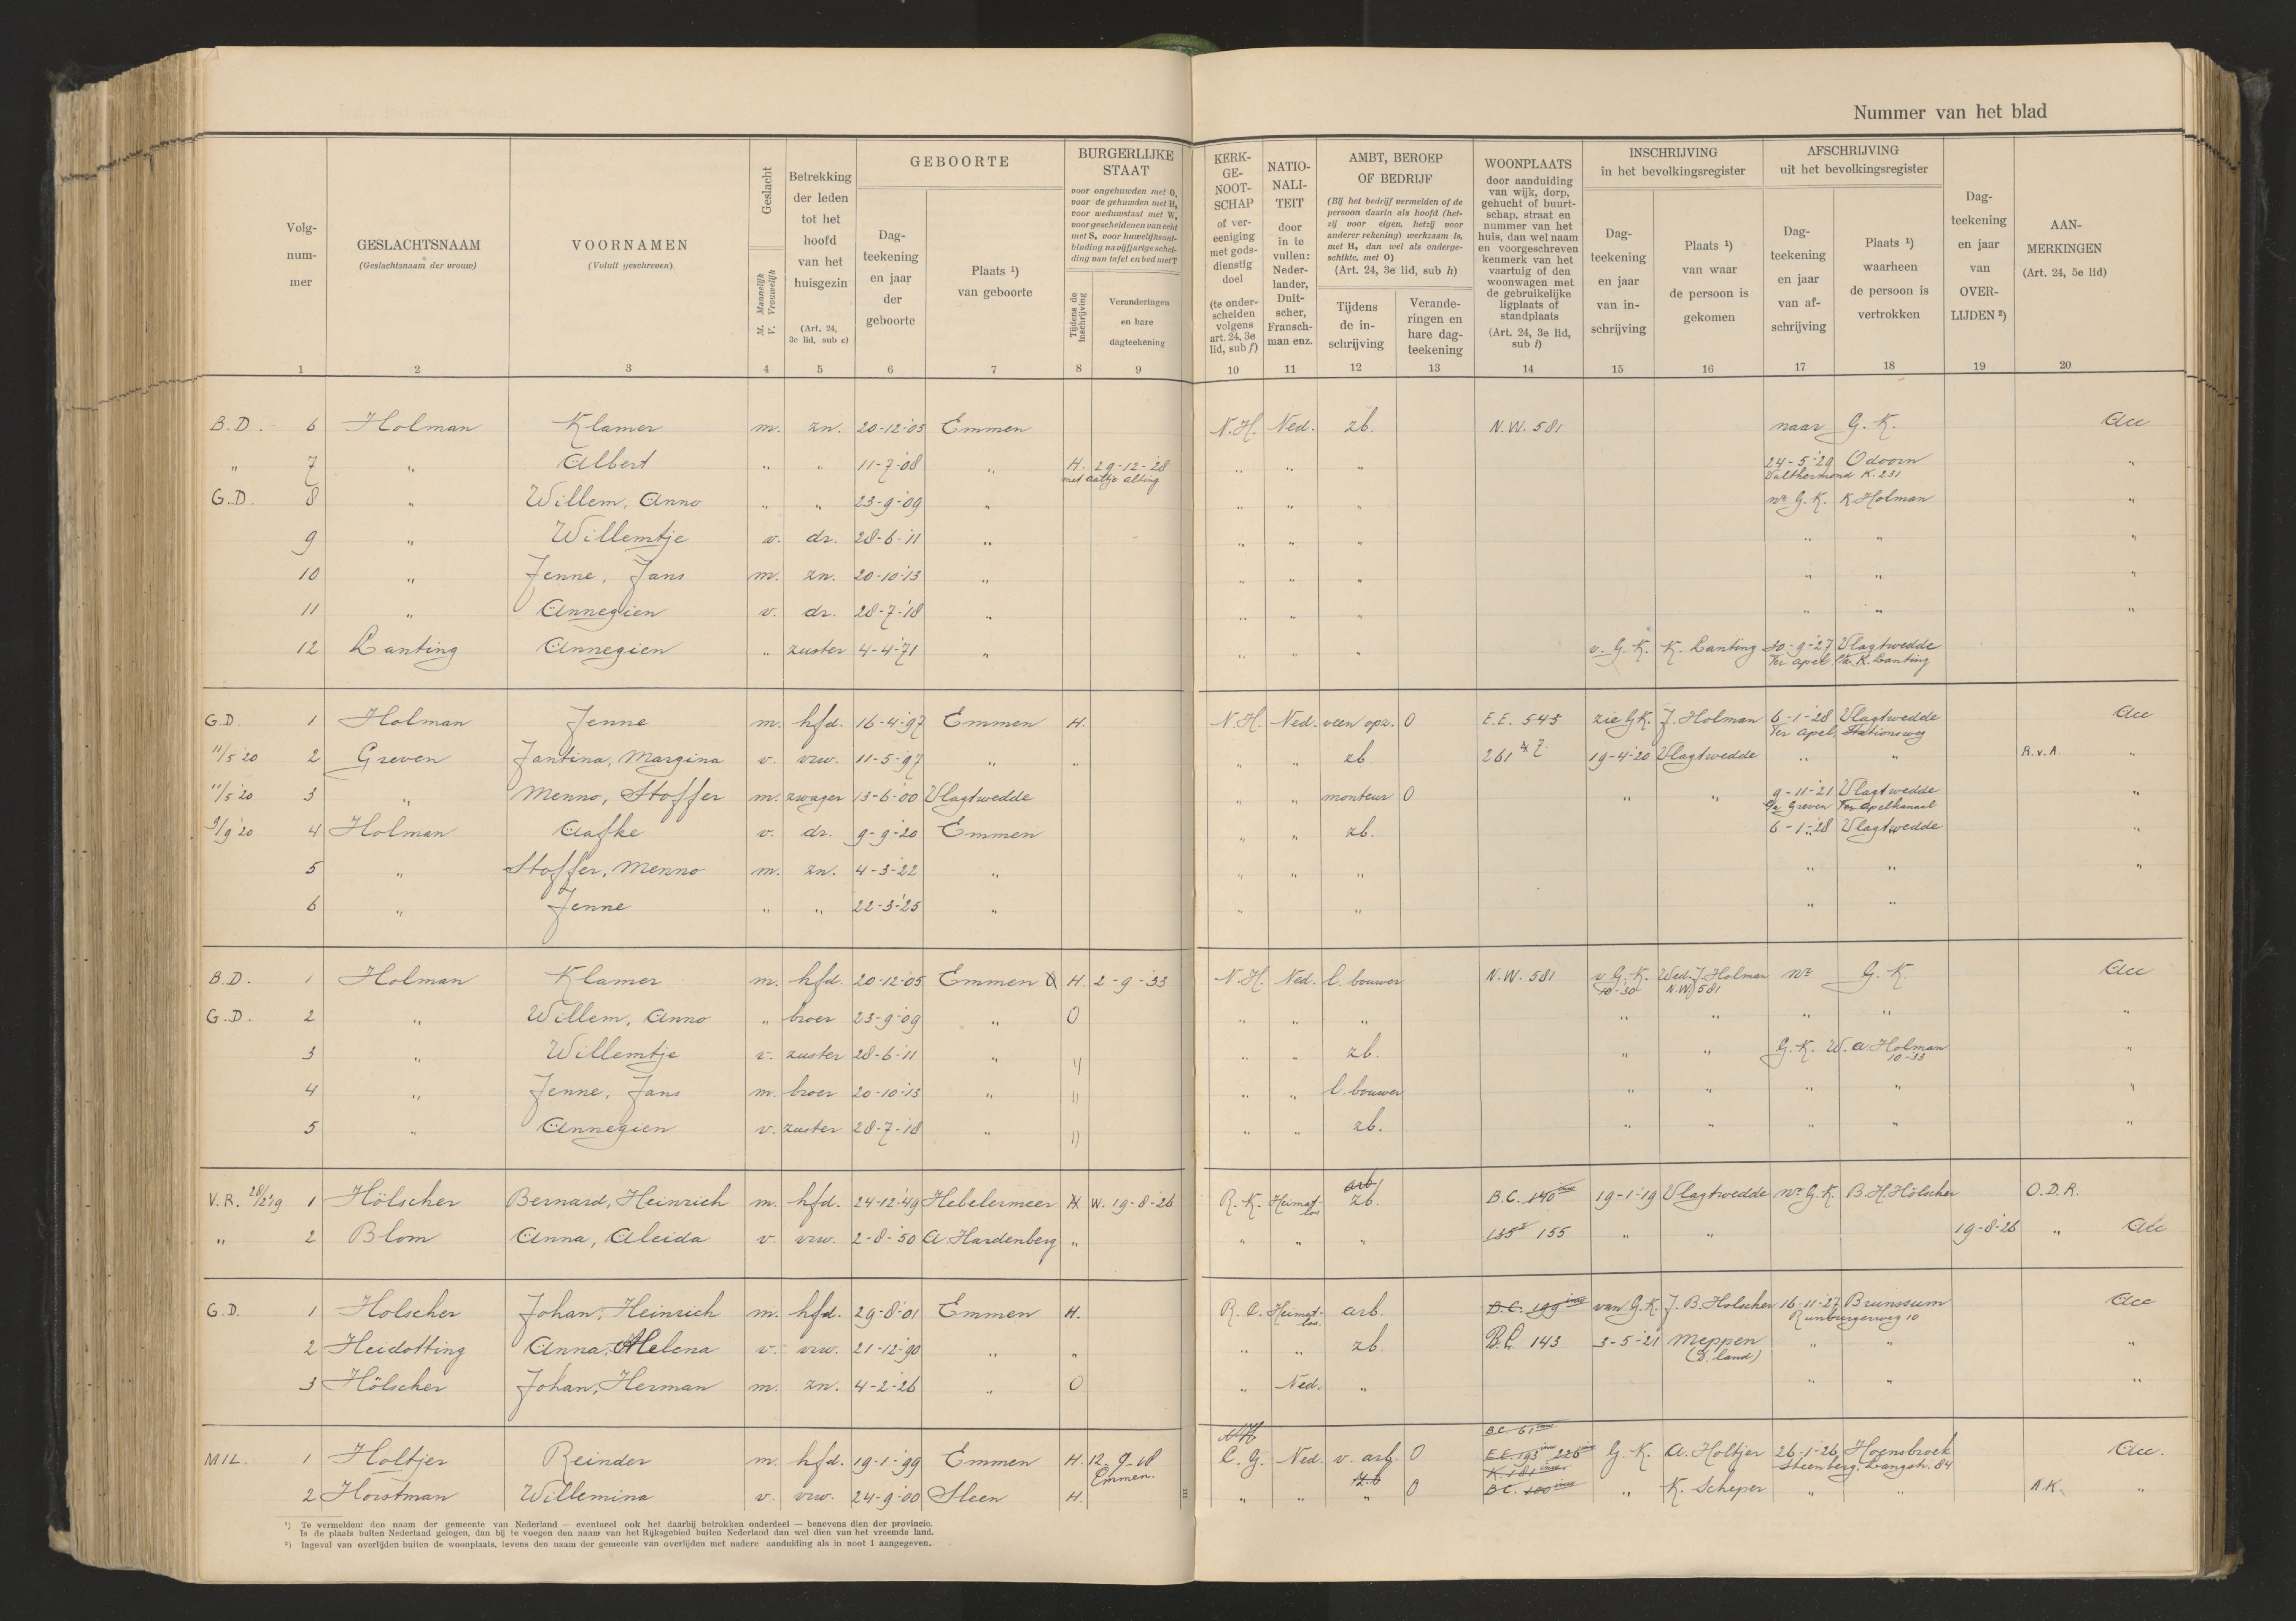 Nummer van het blad
Volg-
num-
mer
GESLACHTSNAAM
(Geslachtsnaam der vrouw)
VOORNAMEN
(Voluit geschreven)
Geslacht
M. Mannelijk
V. Vrouwelijk
Betrekking
der leden
tot het
hoofd
van het
huisgezin
(Art. 24,
3e lid, sub c)
GEBOORTE
Dag-
teekening
en jaar
der
geboorte
Plaats ¹)
van geboorte
BURGERLIJKE
STAAT
voor ongehuwden met O,
voor de gehuwden met H,
voor weduwstaat met W,
voor gescheidenen van echt
met S, voor huwelijksont-
binding na vijfjarige schei-
ding van tafel en bed met T
Tijdens de
inschrijving
Veranderingen
en hare
dagteekening
KERK-
GE-
NOOT-
SCHAP
of ver-
eeniging
met gods-
dienstig
doel
(te onder-
scheiden
volgens
art. 24, 3e
lid, sub f)
NATIO-
NALI-
TEIT
door
in te
vullen:
Neder-
lander,
Duit-
scher,
Fransch-
man enz.
AMBT, BEROEP
OF BEDRIJF
(Bij het bedrijf vermelden of de
persoon daarin als hoofd (het-
zij voor eigen, hetzij voor
anderer rekening) werkzaam is,
met H, dan wel als onderge-
schikte, met O)
(Art. 24, 3e lid, sub h)
Tijdens
de in-
schrijving
Verande-
ringen en
hare dag-
teekening
WOONPLAATS
door aanduiding
van wijk, dorp,
gehucht of buurt-
schap, straat en
nummer van het
huis, dan wel naam
en voorgeschreven
kenmerk van het
vaartuig of den
woonwagen met
de gebruikelijke
ligplaats of
standplaats
(Art. 24, 3e lid,
sub i)
INSCHRIJVING
in het bevolkingsregister
Dag-
teekening
en jaar
van in-
schrijving
Plaats ¹)
van waar
de persoon is
gekomen
AFSCHRIJVING
uit het bevolkingsregister
Dag-
teekening
en jaar
van af-
schrijving
Plaats ¹)
waarheen
de persoon is
vertrokken
Dag-
teekening
en jaar
van
OVER-
LIJDEN ²)
AAN-
MERKINGEN
(Art. 24, 5e lid)
1 2 3 4 5 6 7 8 9 10 11 12 13 14 15 16 17 18 19 20
B.D. 6 Holman Klamer m. zn. 20-12-'05 Emmen N.H. Ned. zb. N.W. 581 naar G.K. Acc
" 7 " Albert " " 11-7-'08 " H. 29-12-'28 " " " 24-5-'29 Odoorn "
met Aaltje Alting Valthermond K.231
G.D. 8 " Willem, Anno " " 23-9-'09 " " " " nr G.K. K Holman "
9 " Willemtje v. dr. 28-6-'11 " " " " " " "
10 " Jenne, Jans m. zn. 20-10-'13 " " " " " " "
11 " Annegien v. dr. 28-7-'18 " " " " " " "
12 Lanting Annegien " zuster 4-4-'71 " " " " v. G.K. K. Lanting 30-9-'27 Vlagtwedde
Ter Apel K. Lanting
G.D. 1 Holman Jenne m. hfd. 16-4-'97 Emmen H. N.H. Ned. veen opz. O E.E. 545 zie G.K. J. Holman 6-1-'28 Vlagtwedde Acc
Ter Apel, Stationsweg
11/5 '20 2 Greven Jantina, Margina v. vrw. 11-5-'97 " " " " zb. 261 19-4-'20 Vlagtwedde " " R.v.A. "
11/5 '20 3 " Menno, Stoffer m. zwager 13-6-'00 Vlagtwedde " " monteur O " " 9-11-'21 Vlagtwedde "
Greven Ter Apelkanaal
9/9 '20 4 Holman Aafke v. dr. 9-9-'20 Emmen " " zb. 6-1-'28 Vlagtwedde "
5 " Stoffer, Menno m. zn. 4-3-'22 " " " " " " "
6 " Jenne " " 22-3-'25 " " " " "
B.D. 1 Holman Klamer m. hfd. 20-12-'05 Emmen O H. 2-9-'33 N.H. Ned. l. bouwer N.W. 581 v G.K. Wed. J. Holman nr G.K. Acc
10-'30 N.W. 581
G.D. 2 " Willem, Anno " broer 23-9-'09 " O " " " " " " " "
3 " Willemtje v. zuster 28-6-'11 " " " " zb. " " G.K. W.A. Holman "
10-33
4 " Jenne, Jans m. broer 20-10-'13 " " " " l. bouwer " " " " "
5 " Annegien v. zuster 28-7-'18 " " " " zb. " " " " "
V.R. 28/2 '19 1 Hölscher Bernard, Heinrich m. hfd. 24-12-'49 Hebelermeer H W. 19-8-'26 R.K. Heimat-los arb. zb. B.C. 140 19-1-'19 Vlagtwedde nr G.K. B.H. Hölscher O.D.R.
" 2 Blom Anna, Aleida v. vrw. 2-8-'50 A. Hardenberg " " " " 135 155 " " 19-8-'26 " Acc
G.D. 1 Holscher Johan, Heinrich m. hfd. 29-8-'01 Emmen H. R.C. Heimat-los. arb. B.C. 199 van G.K. J.B. Holscher 16-11-'27 Brunssum Acc
10
2 Heidotting Anna, Helena v. vrw. 21-12-'90 " " " " zb. B.C. 143 3-5-'21 Meppen " " "
(D. land)
3 Hölscher Johan, Herman m. zn. 4-2-'26 " O " Ned. " " " "
N.H. B.C. 61
MIL. 1 Holtjer Reinder m. hfd. 19-1-'99 Emmen H. 12 9 18 C.G. Ned. v. arb. O E.E. 193 226 G.K. A. Holtjer 26-1-'26 Hoensbroek Acc.
Emmen. z.b K. 181 Steenberg, Langstr. 84
2 Horstman Willemina v. vrw. 24-9-'00 Sleen H. " " " O B.C. 100 " K. Scheper " " A.K. "
¹) Te vermelden: den naam der gemeente van Nederland — eventueel ook het daarbij betrokken onderdeel — benevens dien der provincie.
Is de plaats buiten Nederland gelegen, dan bij te voegen den naam van het Rijksgebied buiten Nederland dan wel dien van het vreemde land.
²) Ingeval van overlijden buiten de woonplaats, tevens den naam der gemeente van overlijden met nadere aanduiding als in noot 1 aangegeven.
III